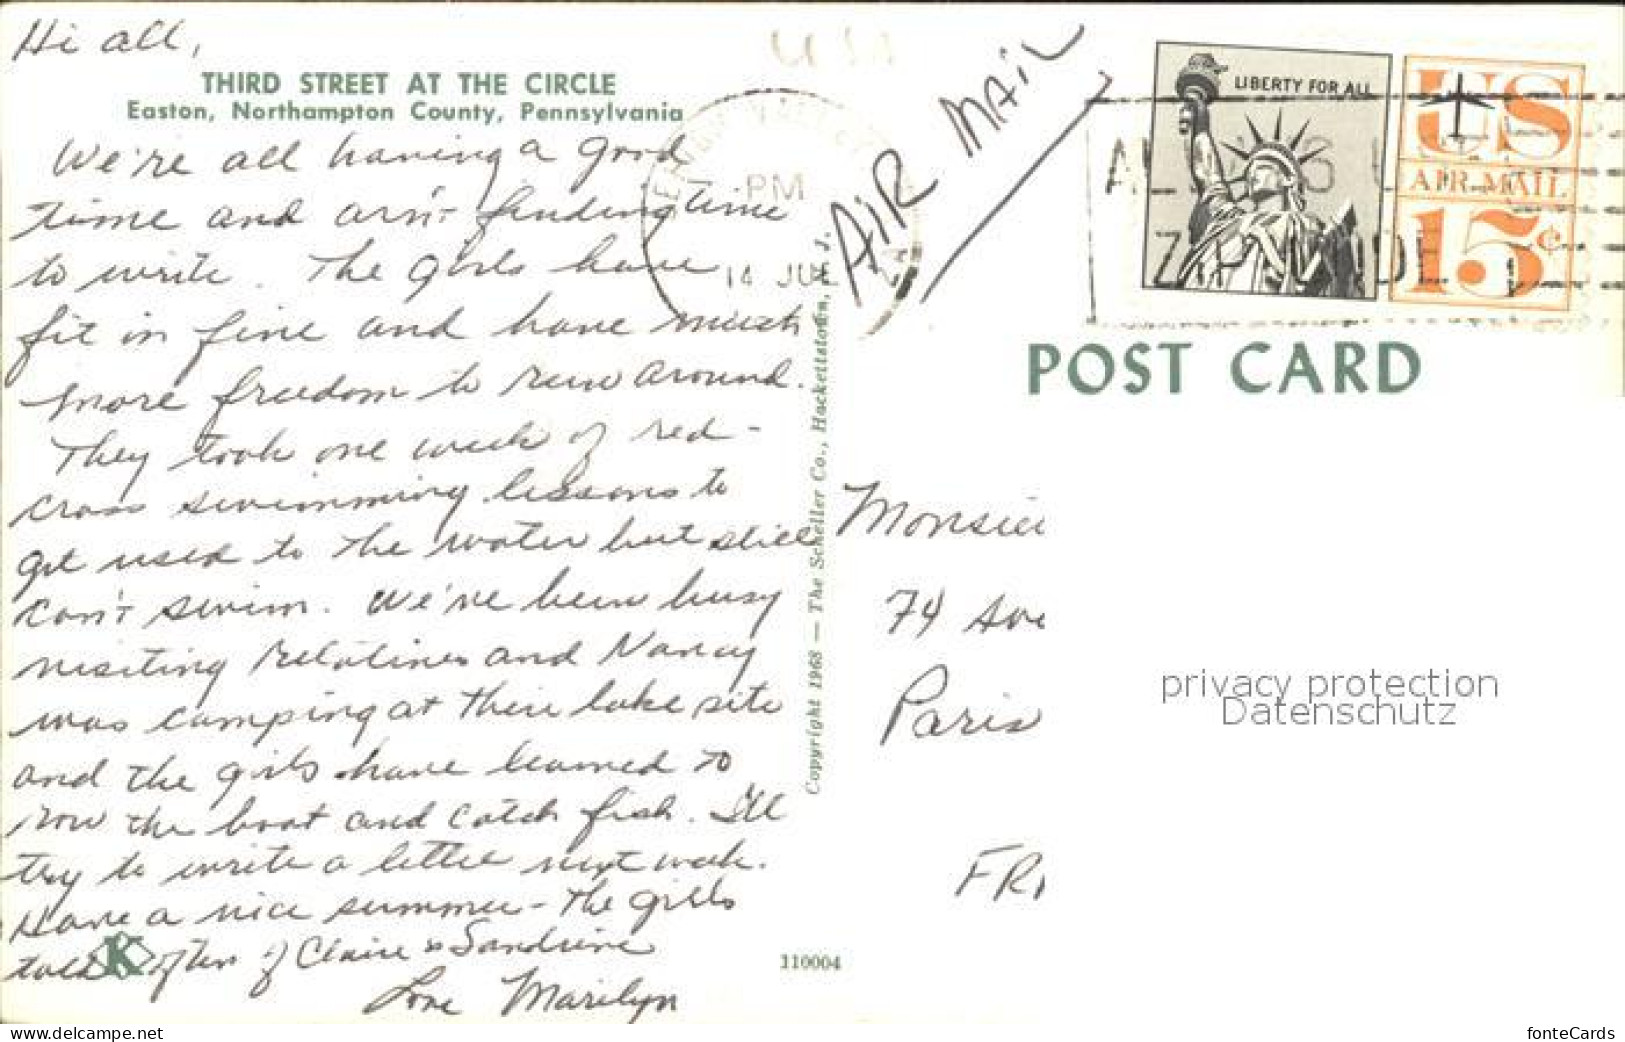 Hi all,
THIRD STREET AT THE CIRCLE
Easton, Northampton County, Pennsylvania
We're all having a good
time and arn't finding time
to write. The girls have
fit in fine and have much
more freedom to run around.
They took one week of red-
cross swimming lessons to
get used to the water but still
can't swim. We've been busy
visiting relatives and Nancy
was camping at their lake site
and the girls have learned to
row the boat and catch fish. I'll
try to write a letter next week.
Have a nice summer - the girls
talk often of Claire & Sandrine
Love Marilyn
K
110004
Copyright 1968 — The Scheller Co., Hackettstown, N. J.
USA
PM
14 JUL
AIR MAIL
LIBERTY FOR ALL
US
AIR MAIL
15¢
ZIP CODE
POST CARD
Monsieu
74 Ave
Paris
FRA
privacy protection
Datenschutz
www.delcampe.net
fonteCards